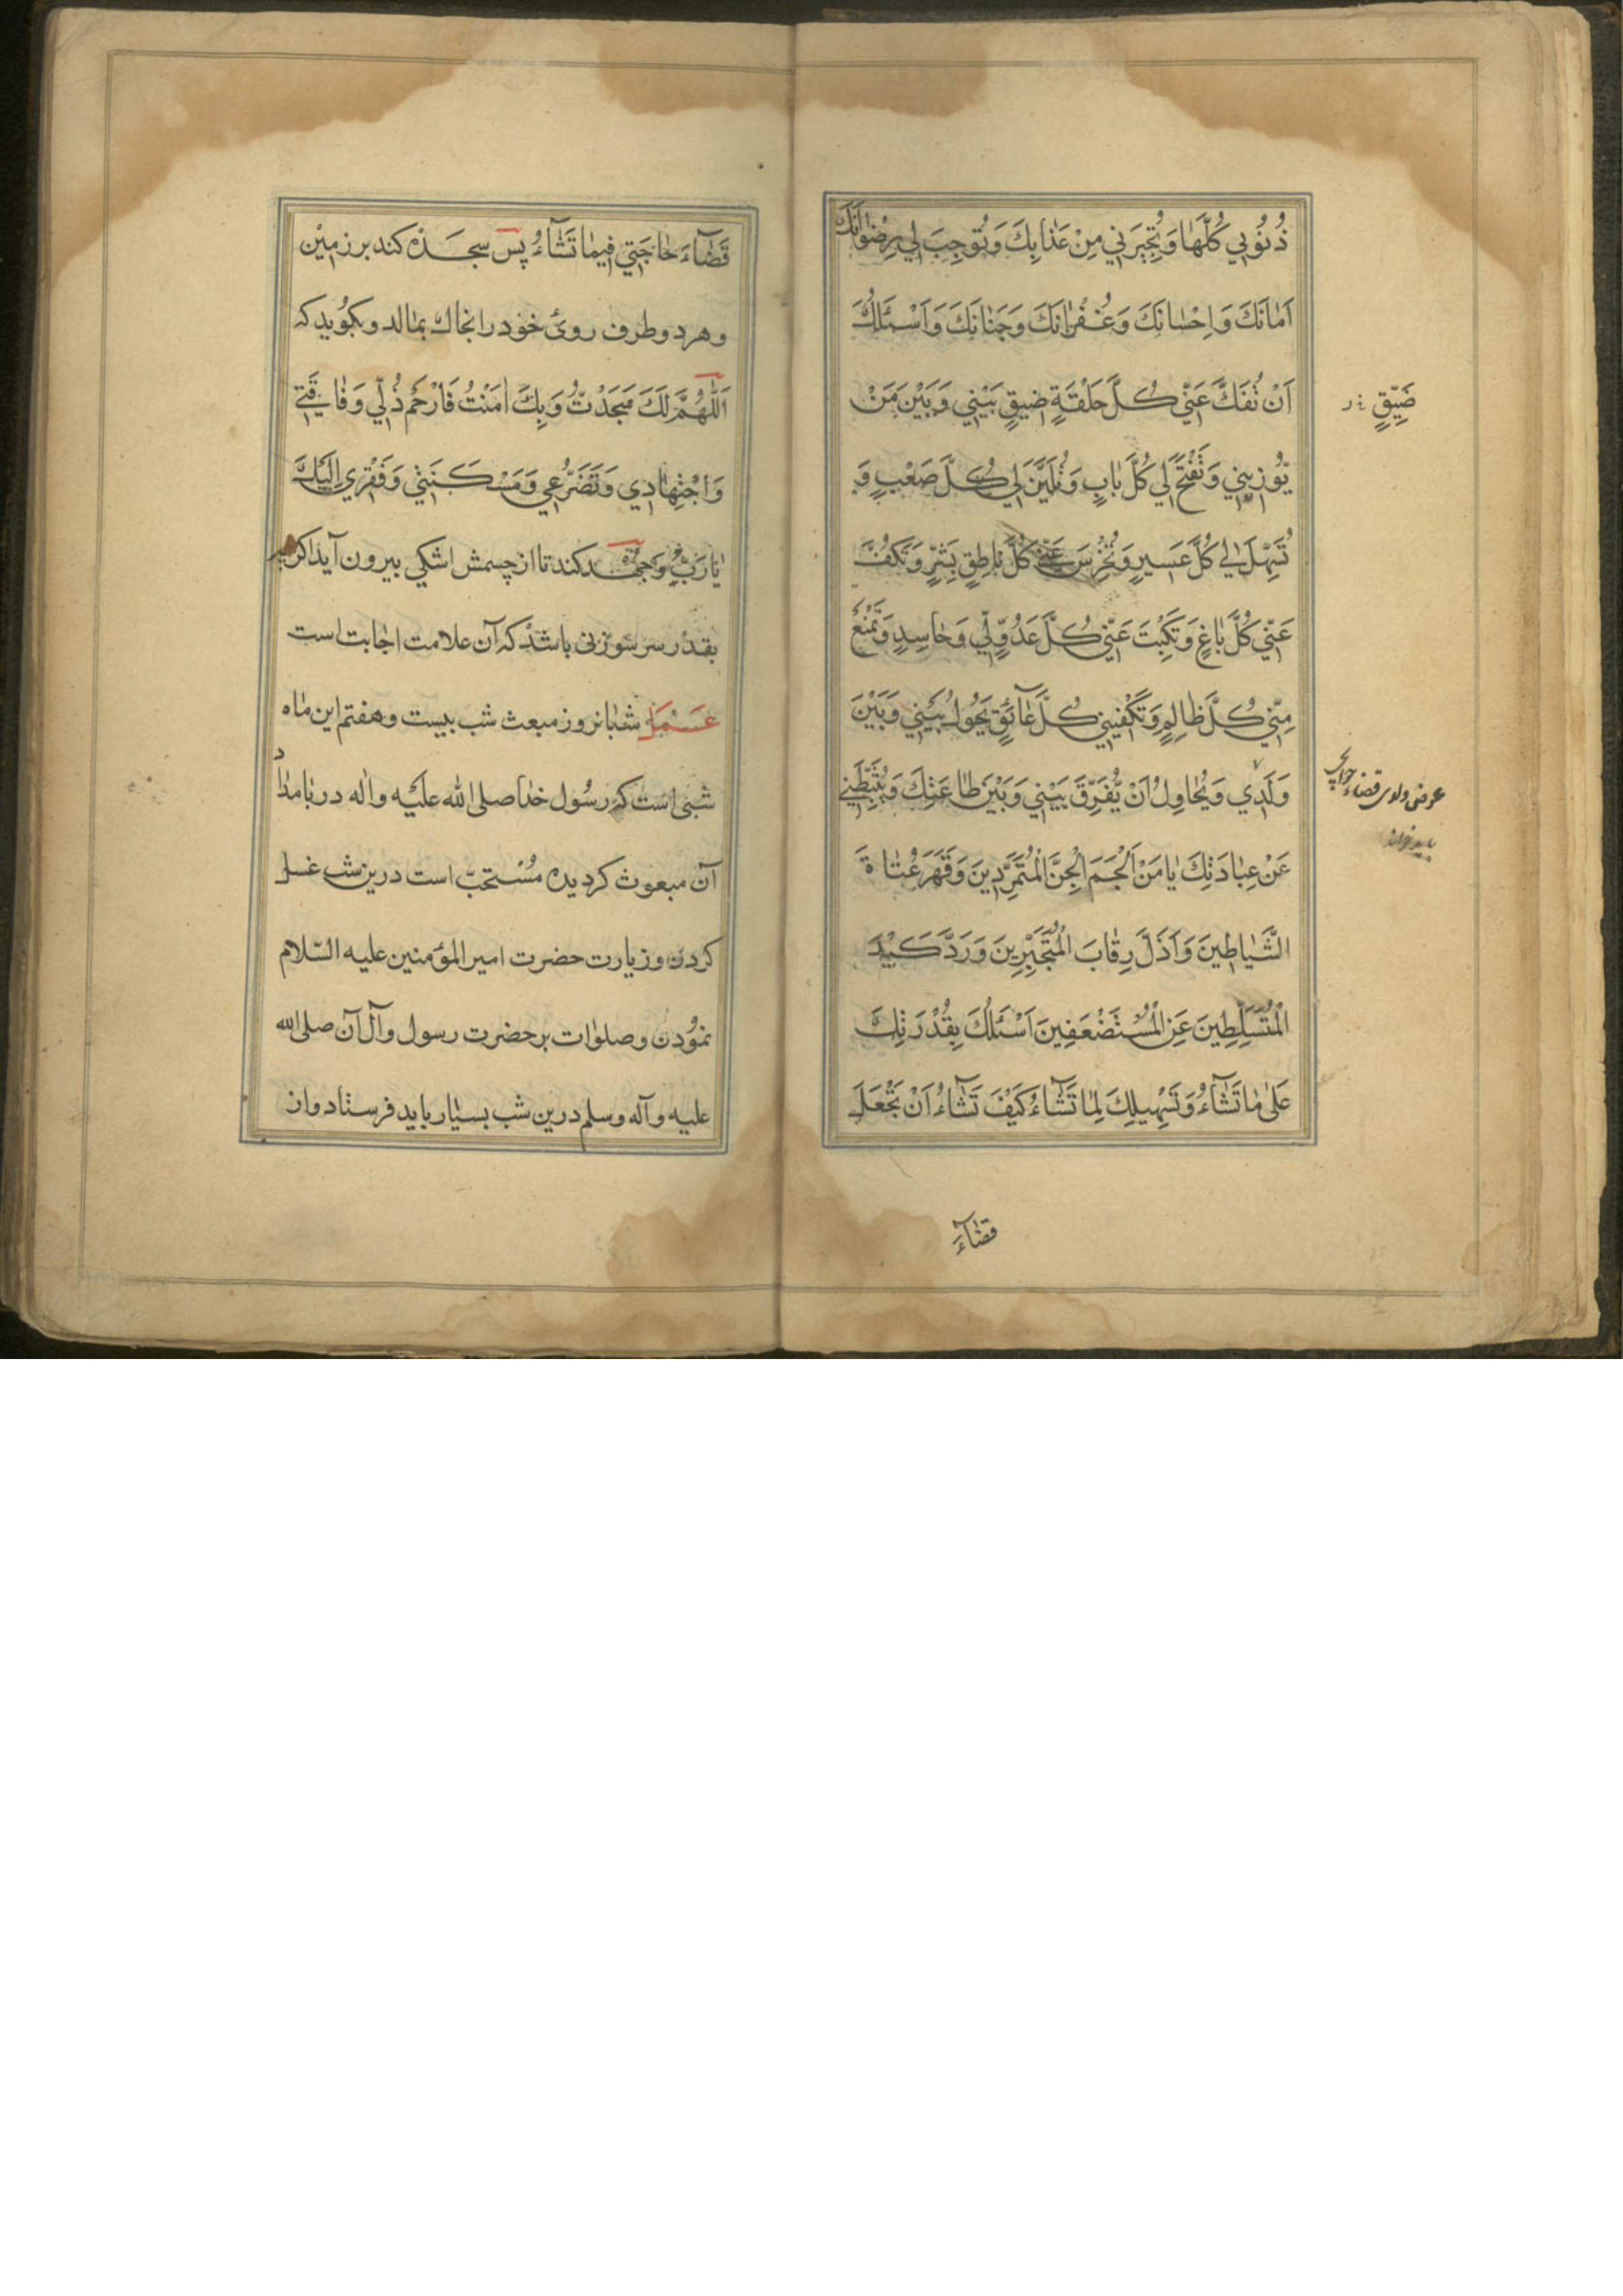 ذُنُوبِي كُلَّهَا وَتُجِيرَنِي مِنْ عَذَابِكَ وَتُوجِبَ لِي رِضْوَانَكَ
اَمَانَكَ وَاِحْسَانَكَ وَغُفْرَانَكَ وَجَنَانَكَ وَاَسْئَلُكَ
اَنْ تَفُكَّ عَنِّي كُلَّ حَلْقَةٍ ضِيقٍ بَيْنِي وَبَيْنَ مَنْ
ضَيِّقٍ
يُؤْذِينِي وَتَفْتَحَ لِي كُلَّ بَابٍ وَتُلَيِّنَ لِي كُلَّ صَعْبٍ وَ
تُسَهِّلَ لِي كُلَّ عَسِيرٍ وَتُخْرِسَ عَنِّي كُلَّ نَاطِقٍ بِشَرٍّ وَتَكُفَّ
عَنِّي كُلَّ بَاغٍ وَتَكْبِتَ عَنِّي كُلَّ عَدُوٍّ لِي وَحَاسِدٍ وَتَمْنَعَ
مِنِّي كُلَّ ظَالِمٍ وَتَكْفِيَنِي كُلَّ عَآئِقٍ يَحُولُ بَيْنِي وَبَيْنَ
وَلَدِي وَيُحَاوِلُ اَنْ يُفَرِّقَ بَيْنِي وَبَيْنَ طَاعَتِكَ وَيُثَبِّطَنِي
عوض ولدی قضاء حوائج
باید خواند
عَنْ عِبَادَتِكَ يَا مَنْ اَلْجَمَ الْجِنَّ الْمُتَمَرِّدِينَ وَقَهَرَ عُتَاةَ
الشَّيَاطِينَ وَاَذَلَّ رِقَابَ الْمُتَجَبِّرِينَ وَرَدَّ كَيْدَ
الْمُتَسَلِّطِينَ عَنِ الْمُسْتَضْعَفِينَ اَسْئَلُكَ بِقُدْرَتِكَ
عَلَى مَا تَشَآءُ وَتَسْهِيلِكَ لِمَا تَشَآءُ كَيْفَ تَشَآءُ اَنْ تَجْعَلَ
قضآءَ
قَضَآءَ حَاجَتِي فِيمَا تَشَآءُ پس سجده کند بر زمین
و هر دو طرف روی خود را بخاك بمالد و بگوید که
اَللّٰهُمَّ لَكَ سَجَدْتُ وَبِكَ اٰمَنْتُ فَارْحَمْ ذُلِّي وَفَاقَتِي
وَاجْتِهَادِي وَتَضَرُّعِي وَمَسْكَنَتِي وَفَقْرِي اِلَيْكَ
يَا رَبِّ وجهد کند تا از چشمش اشکی بیرون آید اگرچه
بقدر سر سوزنی باشد که آن علامت اجابت است
عمل شبانروز مبعث شب بیست و هفتم این ماه
شبی است که رسول خدا صلی الله علیه واله در بامداد
آن مبعوث گردیده مستحبّ است درین شب غسل
کردن و زیارت حضرت امیر المؤمنین علیه السّلام
نمودن و صلوات بر حضرت رسول و آل آن صلی الله
علیه و آله و سلم درین شب بسیار باید فرستاد و از